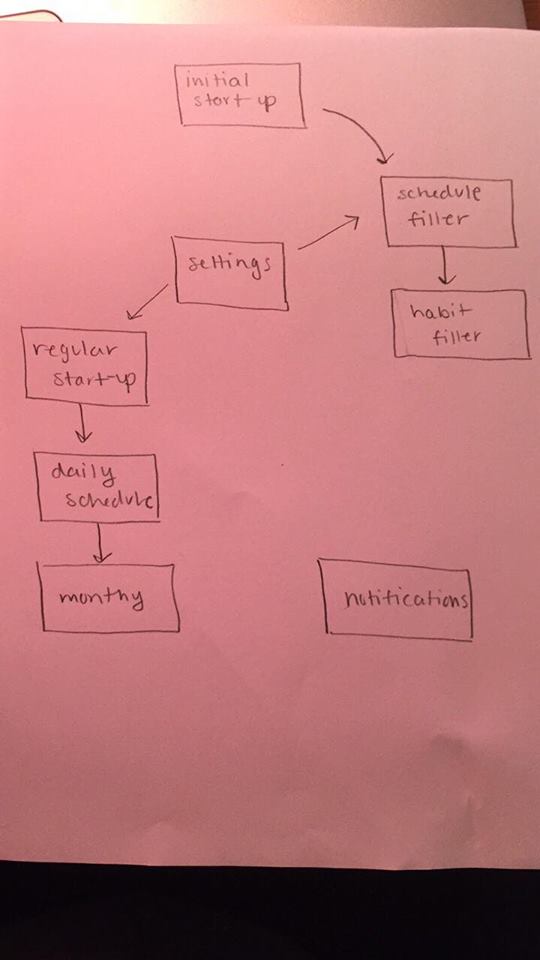 initial
start up
schedule
filler
settings
habit
filler
regular
start-up
daily
schedule
monthy
notifications